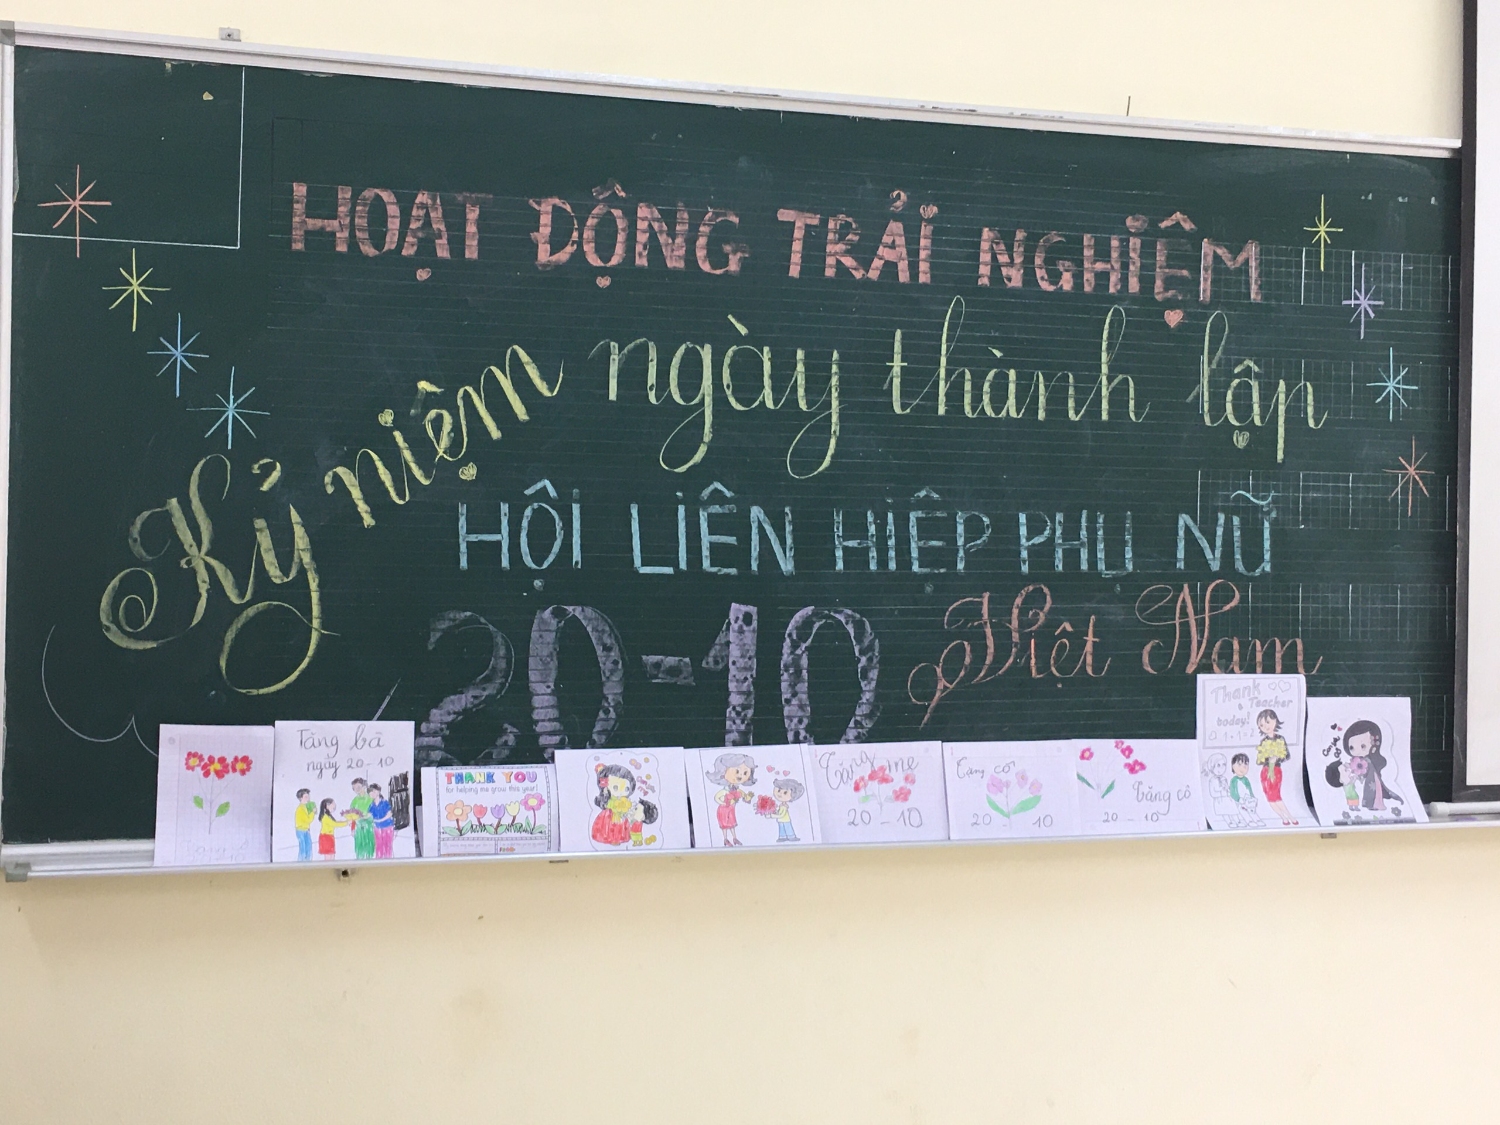 HOẠT ĐỘNG TRẢI NGHIỆM
Kỷ niệm ngày thành lập
HỘI LIÊN HIỆP PHỤ NỮ
20-10 Việt Nam
Tặng bà
ngày 20-10
THANK YOU
for helping me grow this year!
Tặng mẹ
20-10
Tặng cô
20-10
Tặng cô
20-10
Thank
Teacher
today!